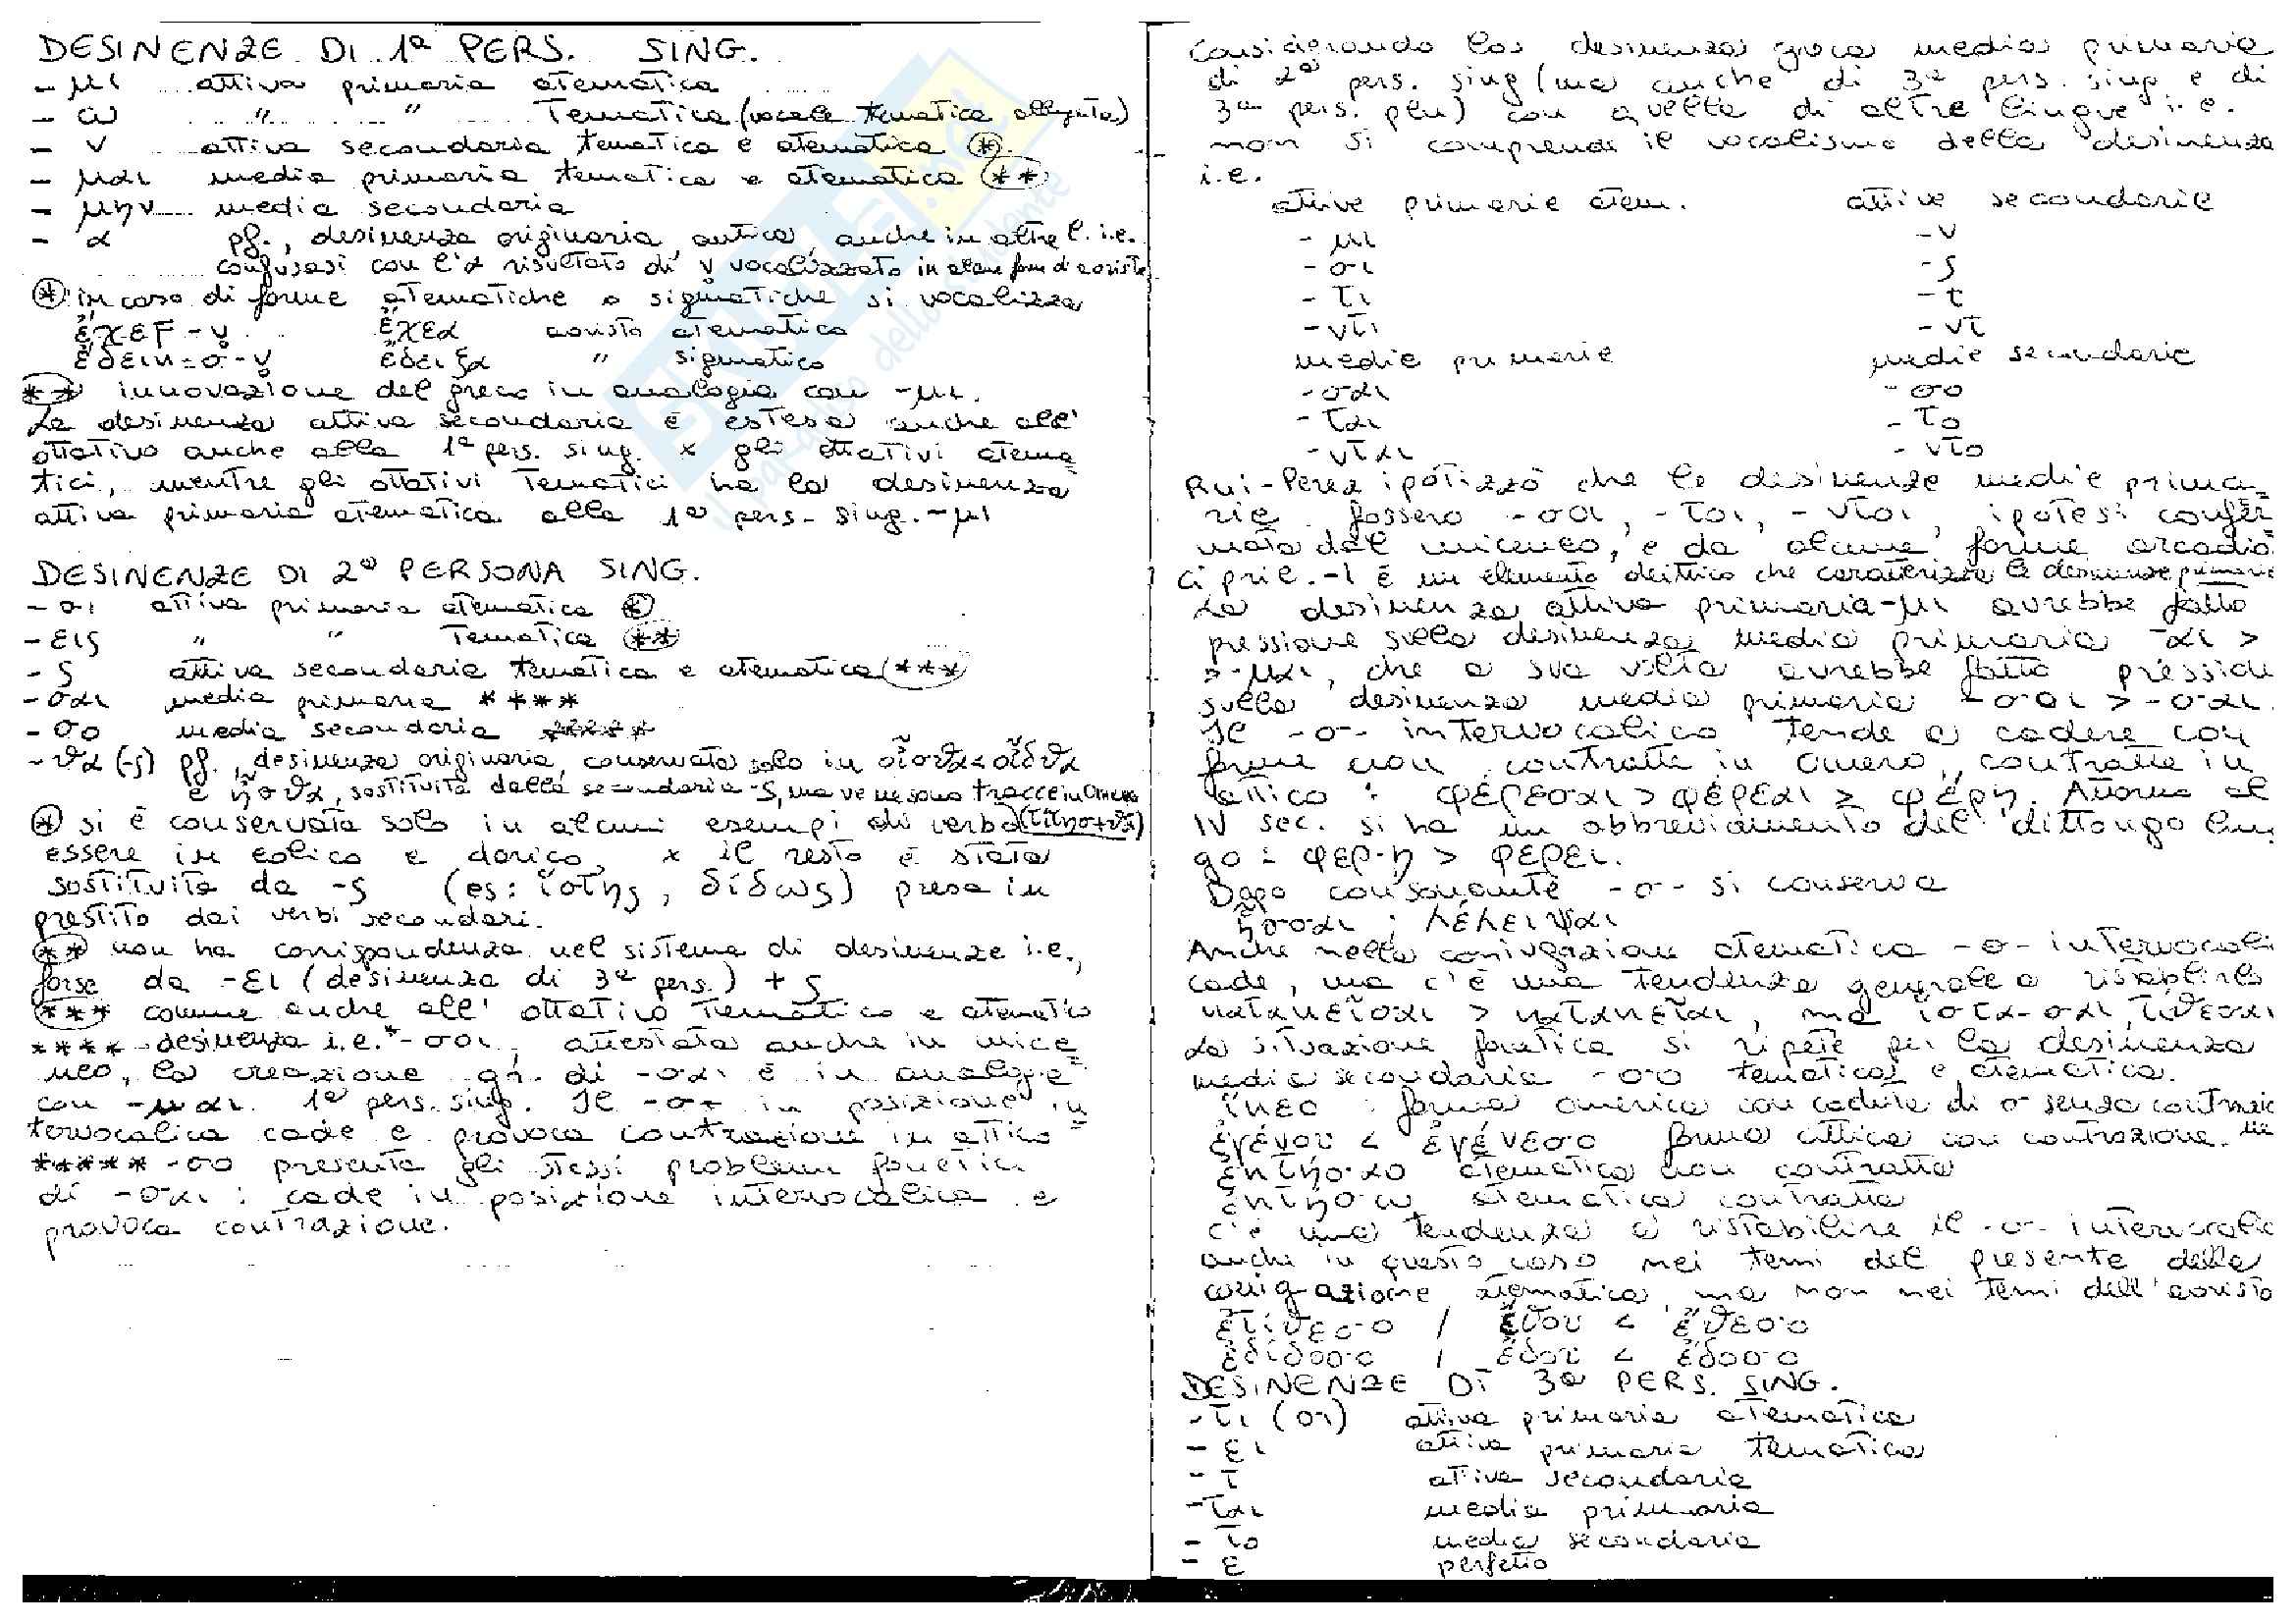 DESINENZE DI 1ª PERS. SING.
- μι attiva primaria atematica
- ω " " Tematica (vocale tematica allungata)
- ν attiva secondaria tematica e atematica (*)
- μαι media primaria tematica e atematica (**)
- μην media secondaria
- α pf., desinenza originaria, antica, anche in altre l. i.e.
confusasi con l'α risultato di ν vocalizzato in alcune forme di aoristo
(*) in caso di forme atematiche o sigmatiche si vocalizza
ἔχεϝ-ν ἔχεα aoristo atematico
ἔδεικ=σ-ν ἔδειξα " sigmatico
(**) innovazione del greco in analogia con -μι.
La desinenza attiva secondaria è estesa anche all'
ottativo anche alla 1ª pers. sing. x gli ottativi atema=
tici, mentre gli ottativi Tematici ha la desinenza
attiva primaria atematica alla 1ª pers. sing. -μι
DESINENZE DI 2ª PERSONA SING.
- σι attiva primaria atematica (*)
- εις " " Tematica (**)
- ς attiva secondaria tematica e atematica (***)
- σαι media primaria ****
- σο media secondaria *****
- θα (-ς) pf., desinenza originaria, conservata solo in οἶσθα < οἶδθα
e ἦσθα, sostituita dalla secondaria -ς, ma ve ne sono tracce in Omero
(*) si è conservata solo in alcuni esempi di verbo
essere in eolico e dorico, x il resto è stata
sostituita da -ς (es: ἵστης, δίδως) presa in
prestito dai verbi secondari.
(**) non ha corrispondenza nel sistema di desinenze i.e.,
forse da -ει (desinenza di 3ª pers.) + ς
(***) comune anche all'ottativo Tematico e atematico
**** desinenza i.e. *-σοι, attestata anche in mice=
neo, la creazione gr. di -σαι è in analogia
con -μαι 1ª pers. sing. Il -σ- in posizione in
tervocalica cade e provoca contrazione in attico
***** -σο presenta gli stessi problemi fonetici
di -σαι : cade in posizione intervocalica e
provoca contrazione.
Considerando la desinenza greca media primaria
di 2ª pers. sing (ma anche di 3ª pers. sing e di
3ª pers. plu) con quella di altre lingue i.e.
non si comprende il vocalismo della desinenza
i.e.
attive primarie atem. attive secondarie
- μι - ν
- σι - ς
- τι - τ
- ντι - ντ
medie primarie medie secondarie
- σαι - σο
- ται - το
- νται - ντο
Rui-Perez ipotizzò che le desinenze medie prima=
rie fossero -σοι, -τοι, -ντοι, ipotesi confer
mata dal miceneo, e da alcune forme arcadio
ciprie. -ι è un elemento deittico che caratterizza le desinenze primarie
La desinenza attiva primaria -μι avrebbe fatto
pressione sulla desinenza media primaria -αι >
> -μαι, che a sua volta avrebbe fatto pressione
sulla desinenza media primaria -σοι > -σαι.
Il -σ- intervocalico tende a cadere con
forme non contratte in Omero, contratte in
attico : φέρεσαι > φέρεαι > φέρῃ. Attorno al
IV sec. si ha un abbreviamento del dittongo lun
go : φέρ-ῃ > φέρει.
Dopo consonante -σ- si conserva
ἧσσαι ; λέλειψαι
Anche nella coniugazione atematica -σ- intervocali
cade, ma c'è una tendenza generale a ristabilirlo
κατακεῖσαι > κατακεῖαι, ma ἵστα-σαι, τίθεσαι
La situazione fonetica si ripete per la desinenza
media secondaria -σο tematica e atematica.
ἵκεο : forma omerica con caduta di σ senza contrazio
ne
ἐγένου < ἐγένεσο forma attica con contrazione.
ἐκτήσαο atematica non contratta
ἐκτήσω atematica contratta
c'è una tendenza a ristabilire il -σ- intervocalic
anche in questo caso nei temi del presente della
coniugazione atematica, ma non nei temi dell'aoristo
ἐτίθεσο / ἔθου < ἔθεσο
ἐδίδοσο / ἔδου < ἔδοσο
DESINENZE DI 3ª PERS. SING.
- τι (σι) attiva primaria atematica
- ει attiva primaria tematica
- τ attiva secondaria
- ται media primaria
- το media secondaria
- ε perfetto